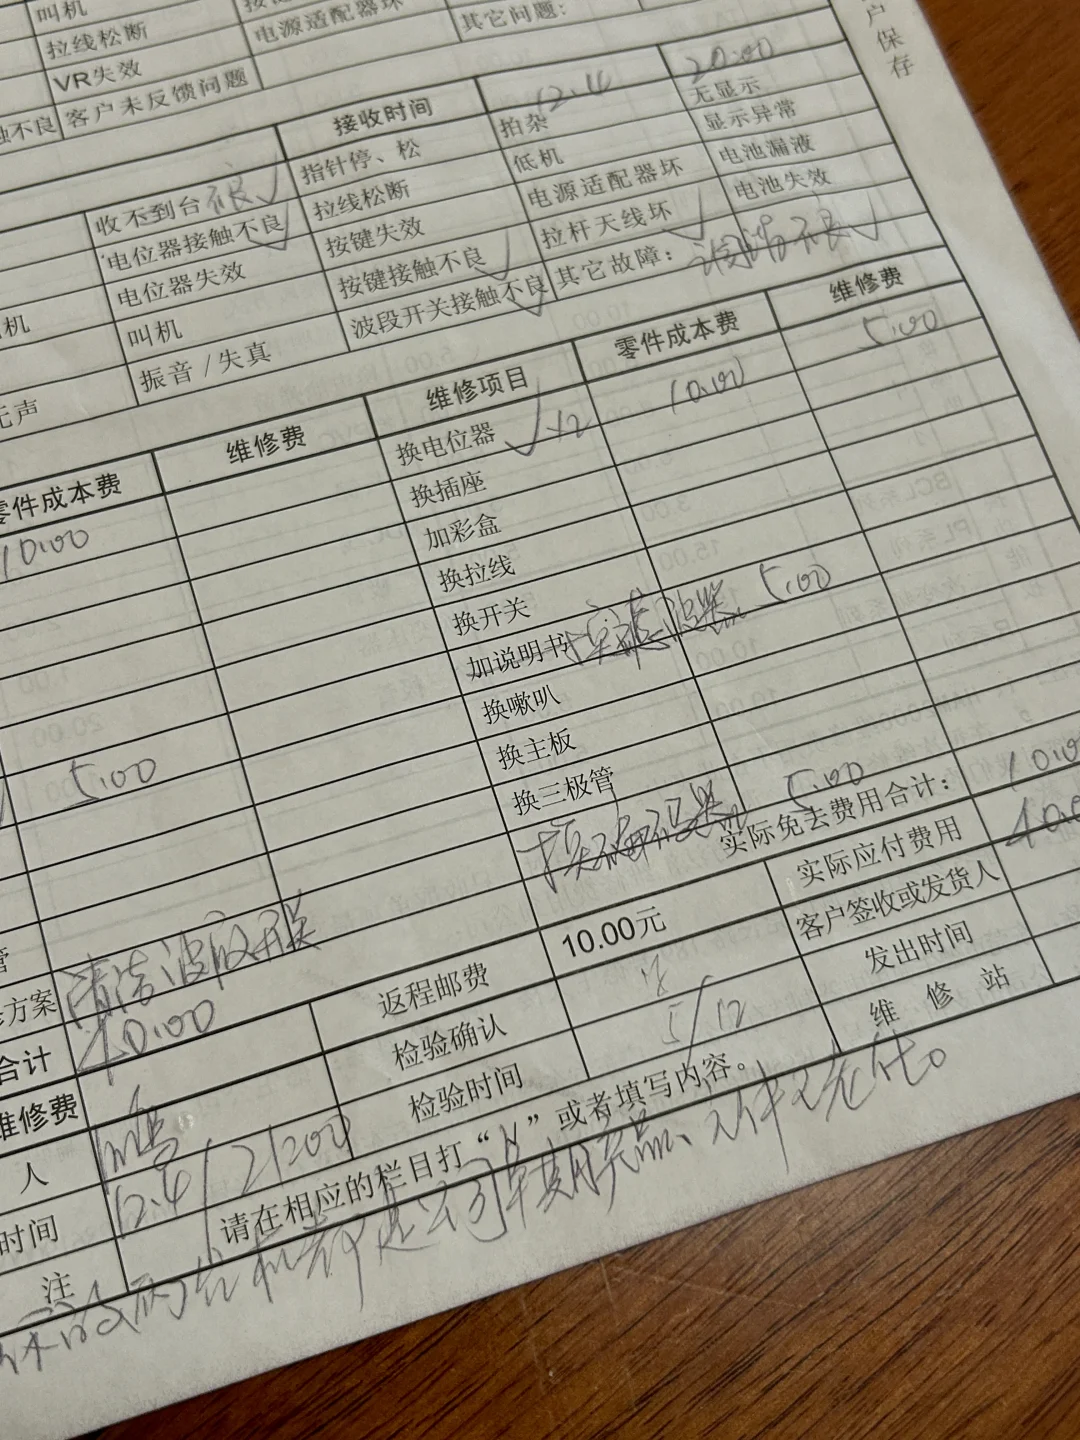 户保存
叫机
拉线松断
电源适配器坏
其它问题:
VR失效
触不良 客户未反馈问题
接收时间 12.4 20:00
收不到台 良✓ 指针停、松 拍杂 无显示
电位器接触不良✓ 拉线松断 低机 显示异常
电位器失效 按键失效 电源适配器坏 电池漏液
机 叫机 按键接触不良✓ 拉杆天线坏✓ 电池失效
无声 振音/失真 波段开关接触不良✓ 其它故障: 调谐不良✓
零件成本费 维修费 维修项目 零件成本费 维修费
10.00 换电位器 ✓×2 10.00 5.00
换插座
加彩盒
换拉线
换开关
加说明书 换滤波器 5.00
换喇叭
5.00 换主板
换三极管
管 换滤波器 5.00 实际免去费用合计: 10.00
方案 清洁波段开关 实际应付费用
合计 40.00 返程邮费 10.00元 客户签收或发货人
维修费 检验确认 发出时间
人 检验时间 5/12 维修站
时间 12.4/2/200
请在相应的栏目打“✓”或者填写内容。
注 两台机都是公司早期产品、元件已老化。